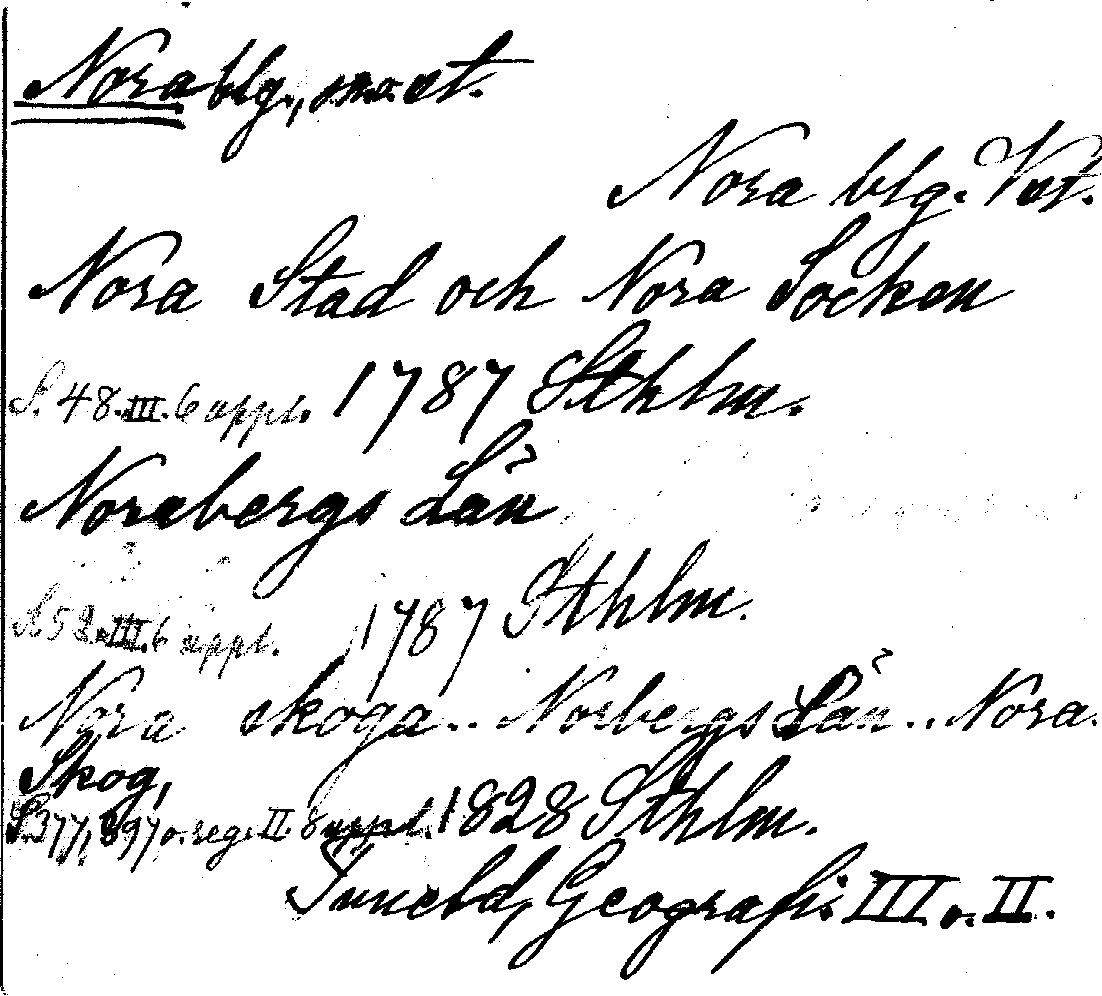 Nora blg., sn. o. st.
Nora blg. Vst.
Nora Stad och Nora Socken
S. 48. III. 6 uppl. 1787 Sthlm.
Norabergs Län
S. 52. III. 6 uppl. 1787 Sthlm.
Nora skoga.. Norbergs Län.. Nora
Skog,
S. 377, 397 o. reg. II. 8 uppl. 1828 Sthlm.
Tuneld, Geografi. III o. II.